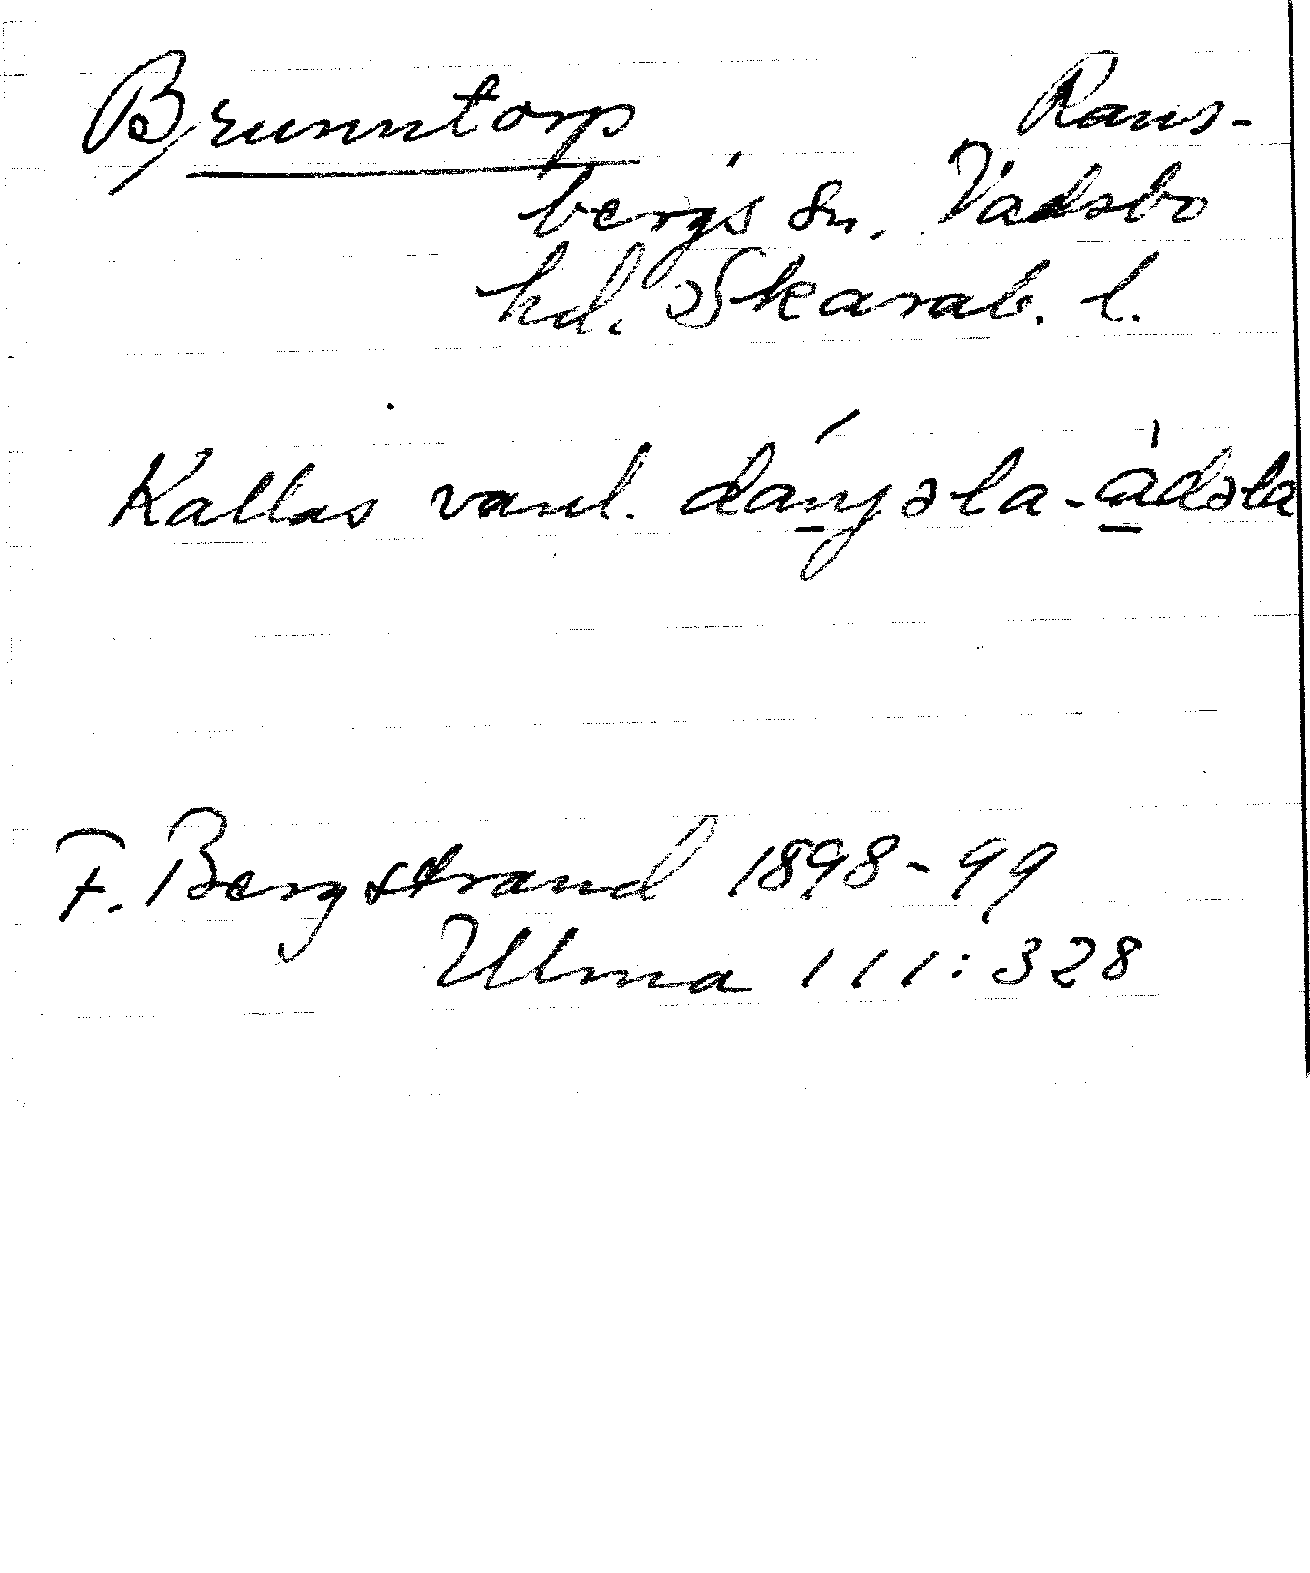 Brunntorp Rans-
bergs sn. Vadsbo
hd. Skarab. l.
Kallas vanl.
F. Bergstrand 1898-99
Ulma 111:328